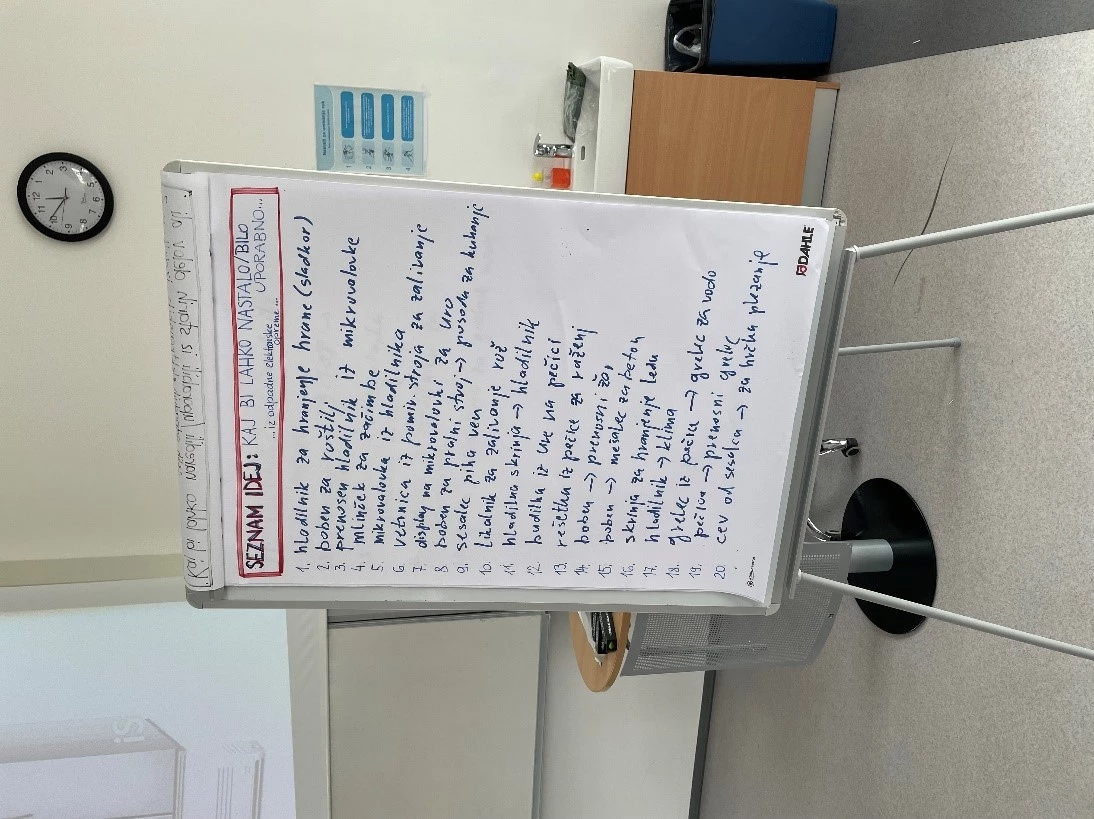 SEZNAM IDEJ: KAJ BI LAHKO NASTALO/BILO
UPORABNO...
...iz odpadne elektronske
opreme...
1. hladilnik za hranjenje hrane (sladkor)
2. boben za roštilj
3. prenosen hladilnik iz mikrovalovke
4. mlinček za začimbe
5. mikrovalovka iz hladilnika
6. vetrnica iz pomiv. stroja za zalivanje
7. display na mikrovalovki za uro
8 boben za pralni stroj → posoda za kuhanje
9. sesalec piha ven
10. likalnik za zalivanje rož
11. hladilna skrinja → hladilnik
12. budilka iz ure na pečici
13. rešetka iz pečice za raženj
14. boben → prenosni žar
15. boben → mešalec za beton
16. skrinja za hranjenje ledu
17. hladilnik → klima
18. grelec iz pečice → grelec za vodo
19. pečica → prenosni grelec
20. cev od sesalca → za hrčka plezanje
DAHLE
12
1
2
3
5
6
7
8
9
10
11